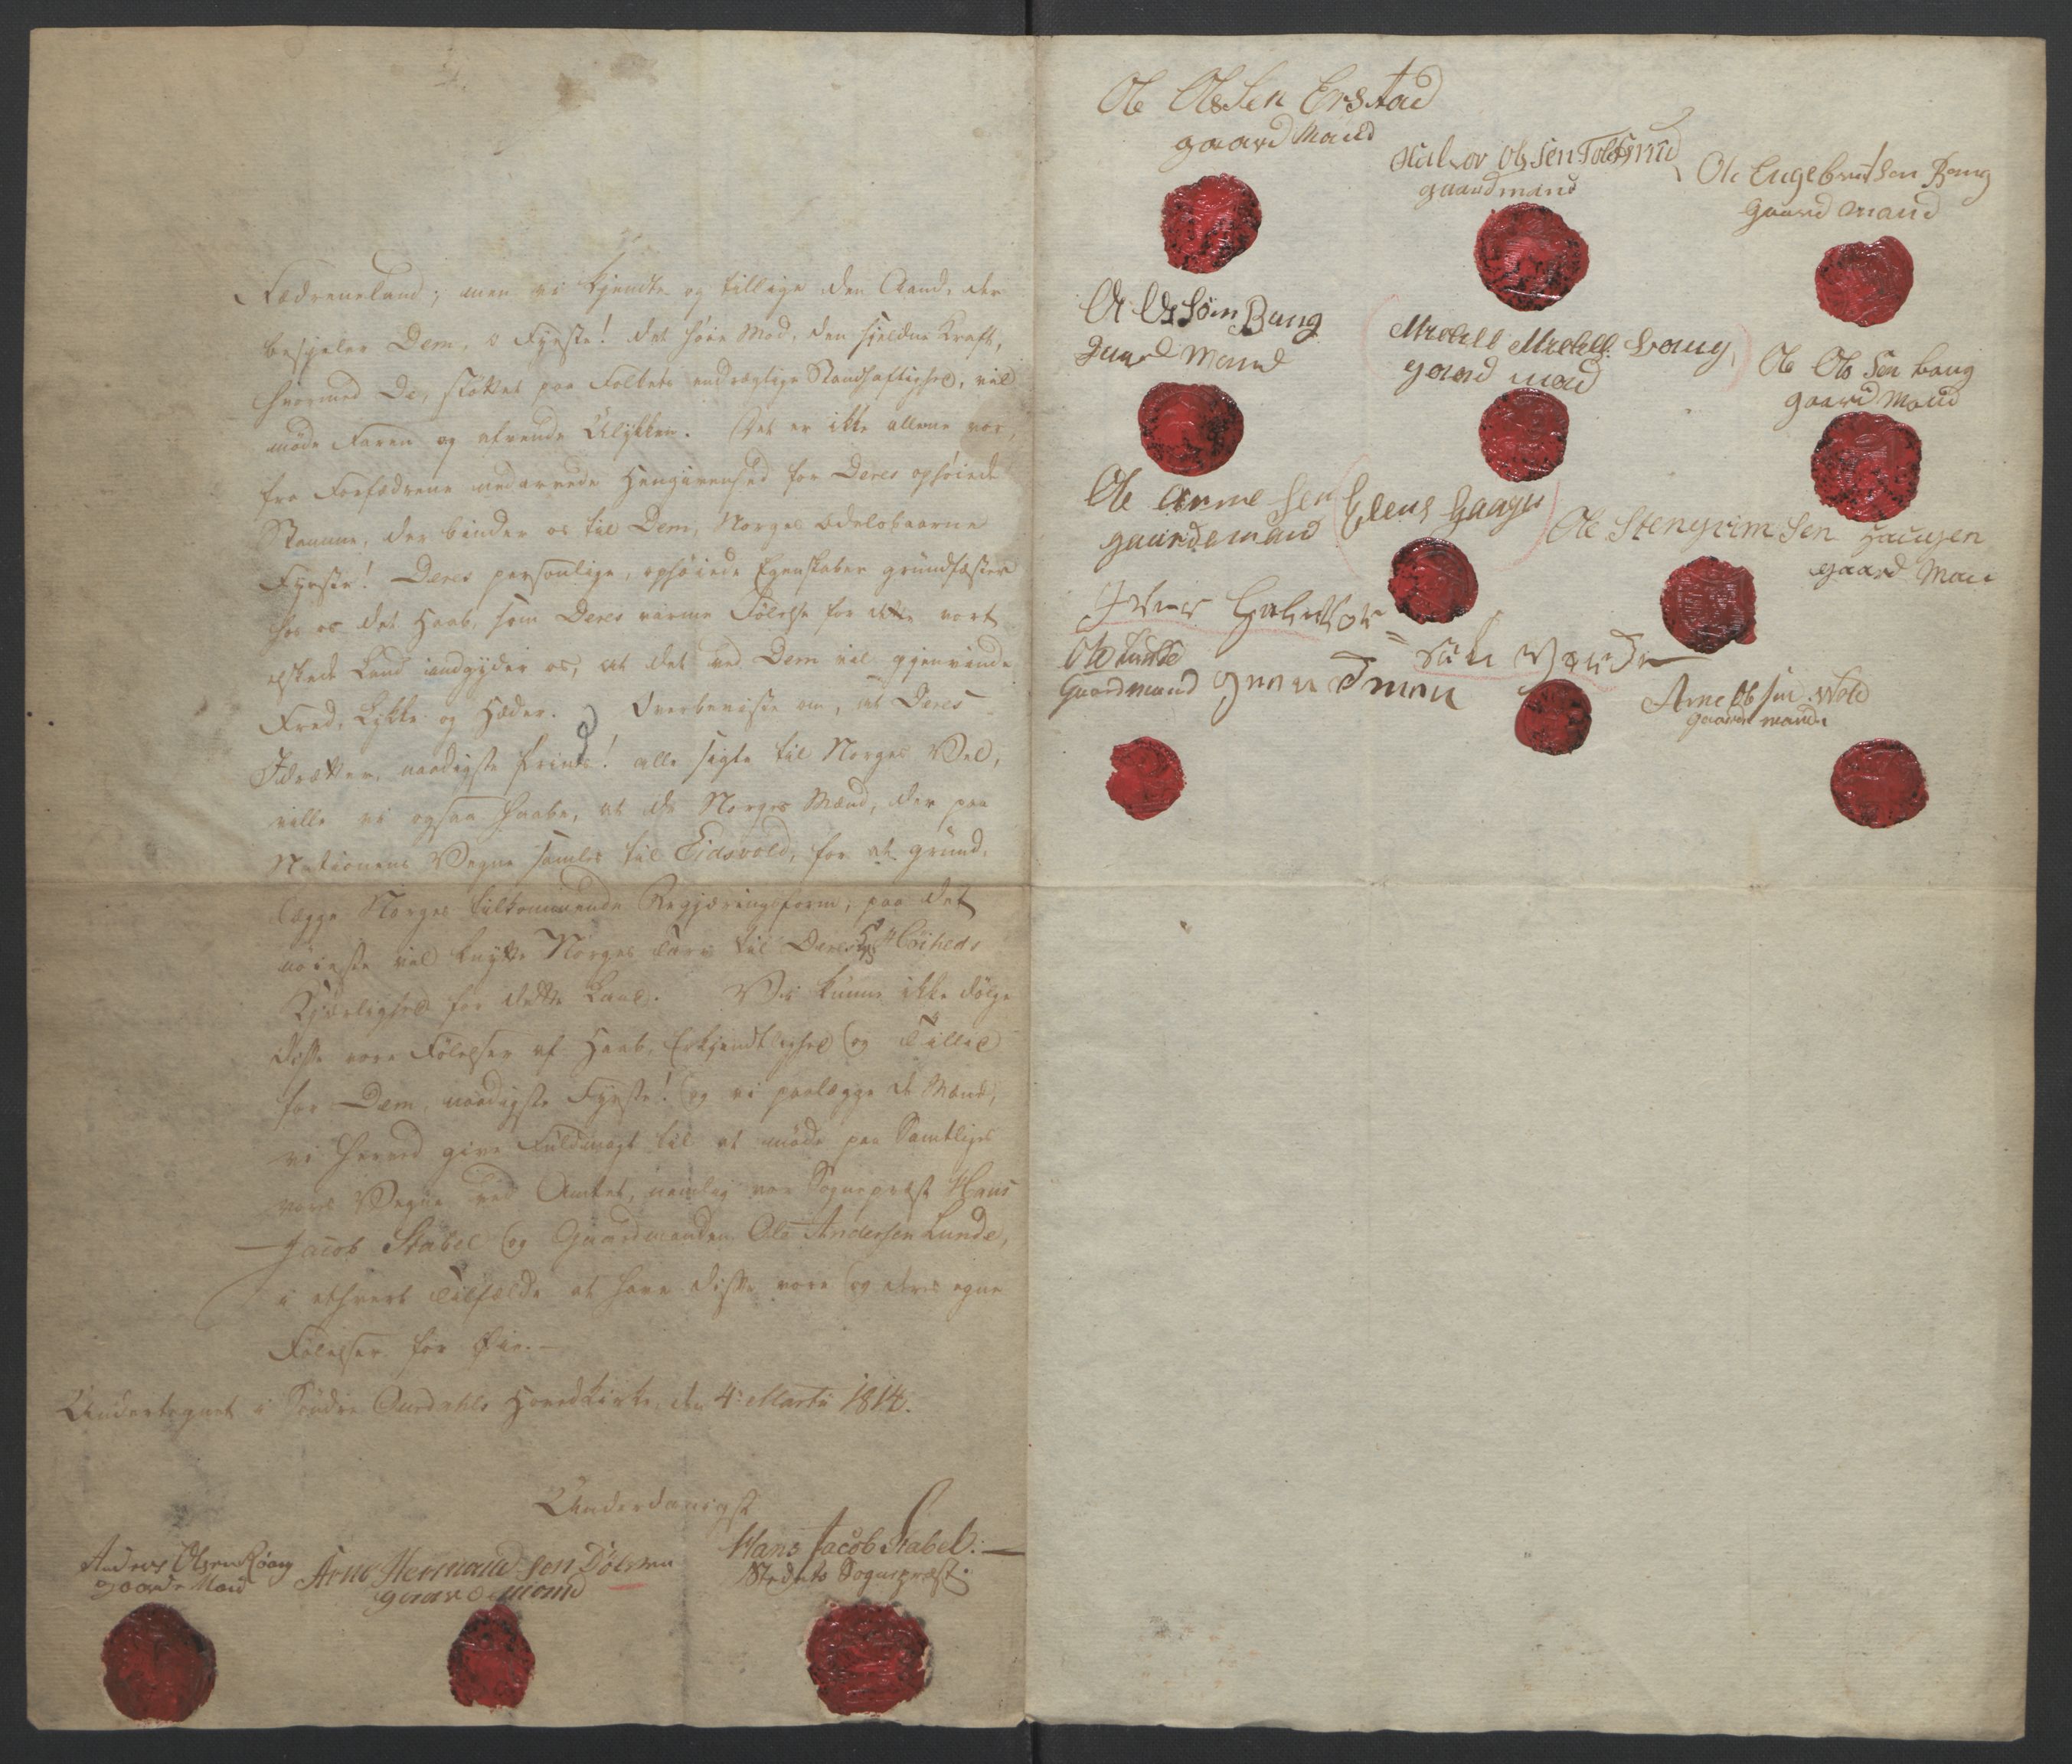 Fædreneland; men vi kjendte og tillige den Aand, der
besjæler Dem, o Fyrste! det høie Mod, den sjeldne Kraft,
hvormed De, støttet paa Folkets endrægtige Standhaftighed, vil
møde Faren og afvende Ulykken. Det er ikke allene vor,
fra Forfædrene nedarvede Hengivenhed for Deres ophøiede
Stamme, der binder os til Dem, Norges Odelsbaarne
Fyrste! Deres personlige, ophøiede Egenskaber grundfæster
hos os det Haab, som Deres varme Følelse for dette vort
elskede Land indgyder os, at det ved Dem vil gjenvinde
Fred, Lykke og Hæder. Overbeviste om, at Deres
Idrætter, naadigste Prinds! alle sigte til Norges Vel,
ville vi ogsaa haabe, at de Norges Mænd, der paa
Nationens Vegne samles til Eidsvold, for at grund-
lægge Norges tilkommende Regjæringsform, paa det
nøieste vil knytte Norges Tarv til Deres Høiheds
Kjærlighed for dette Land. Vi kunne ikke dølge
disse vore Følelser af Haab, Erkjendtlighed og Tillid
for Dem, naadigste Fyrste! og vi paalægge de Mænd,
vi herved give Fuldmagt til at møde paa Samtliges
vores Vegne ved Amtet, nemlig vor Sognepræst Hans
Jacob Stabel og Gaardmanden Ole Andersen Lunde,
i ethvert Tilfælde at have disse vore og deres egne
Følelser for Øie.—
Undertegnet i Søndre Ourdahls Hovedkirke, den 4 Martii 1814.
Underdanigst
Hans Jacob Stabel.—
Stedets Sognepræst.
Arne Hermand sen Dølven
gaardemand
Anders Olsen Røang
gaarde Mand
Ole Olssen Erstad
gaard Mand
Halvor Olssen Tollefsrud
gaardmand
Ole Engebretsen Bang
gaard mand
Ole Olssøn Bang
gaard Mand
Mickell Mickells. Bang
gaard mand
Ole Olssen bang
gaard Mand
Ole Arnesen
gaardemand
Elens Haagen
Ole Stengrimsen Haugen
gaard Man
Ole Lunde
Gaardmand
gaardman
Arne Olssen Wold
gaardmand